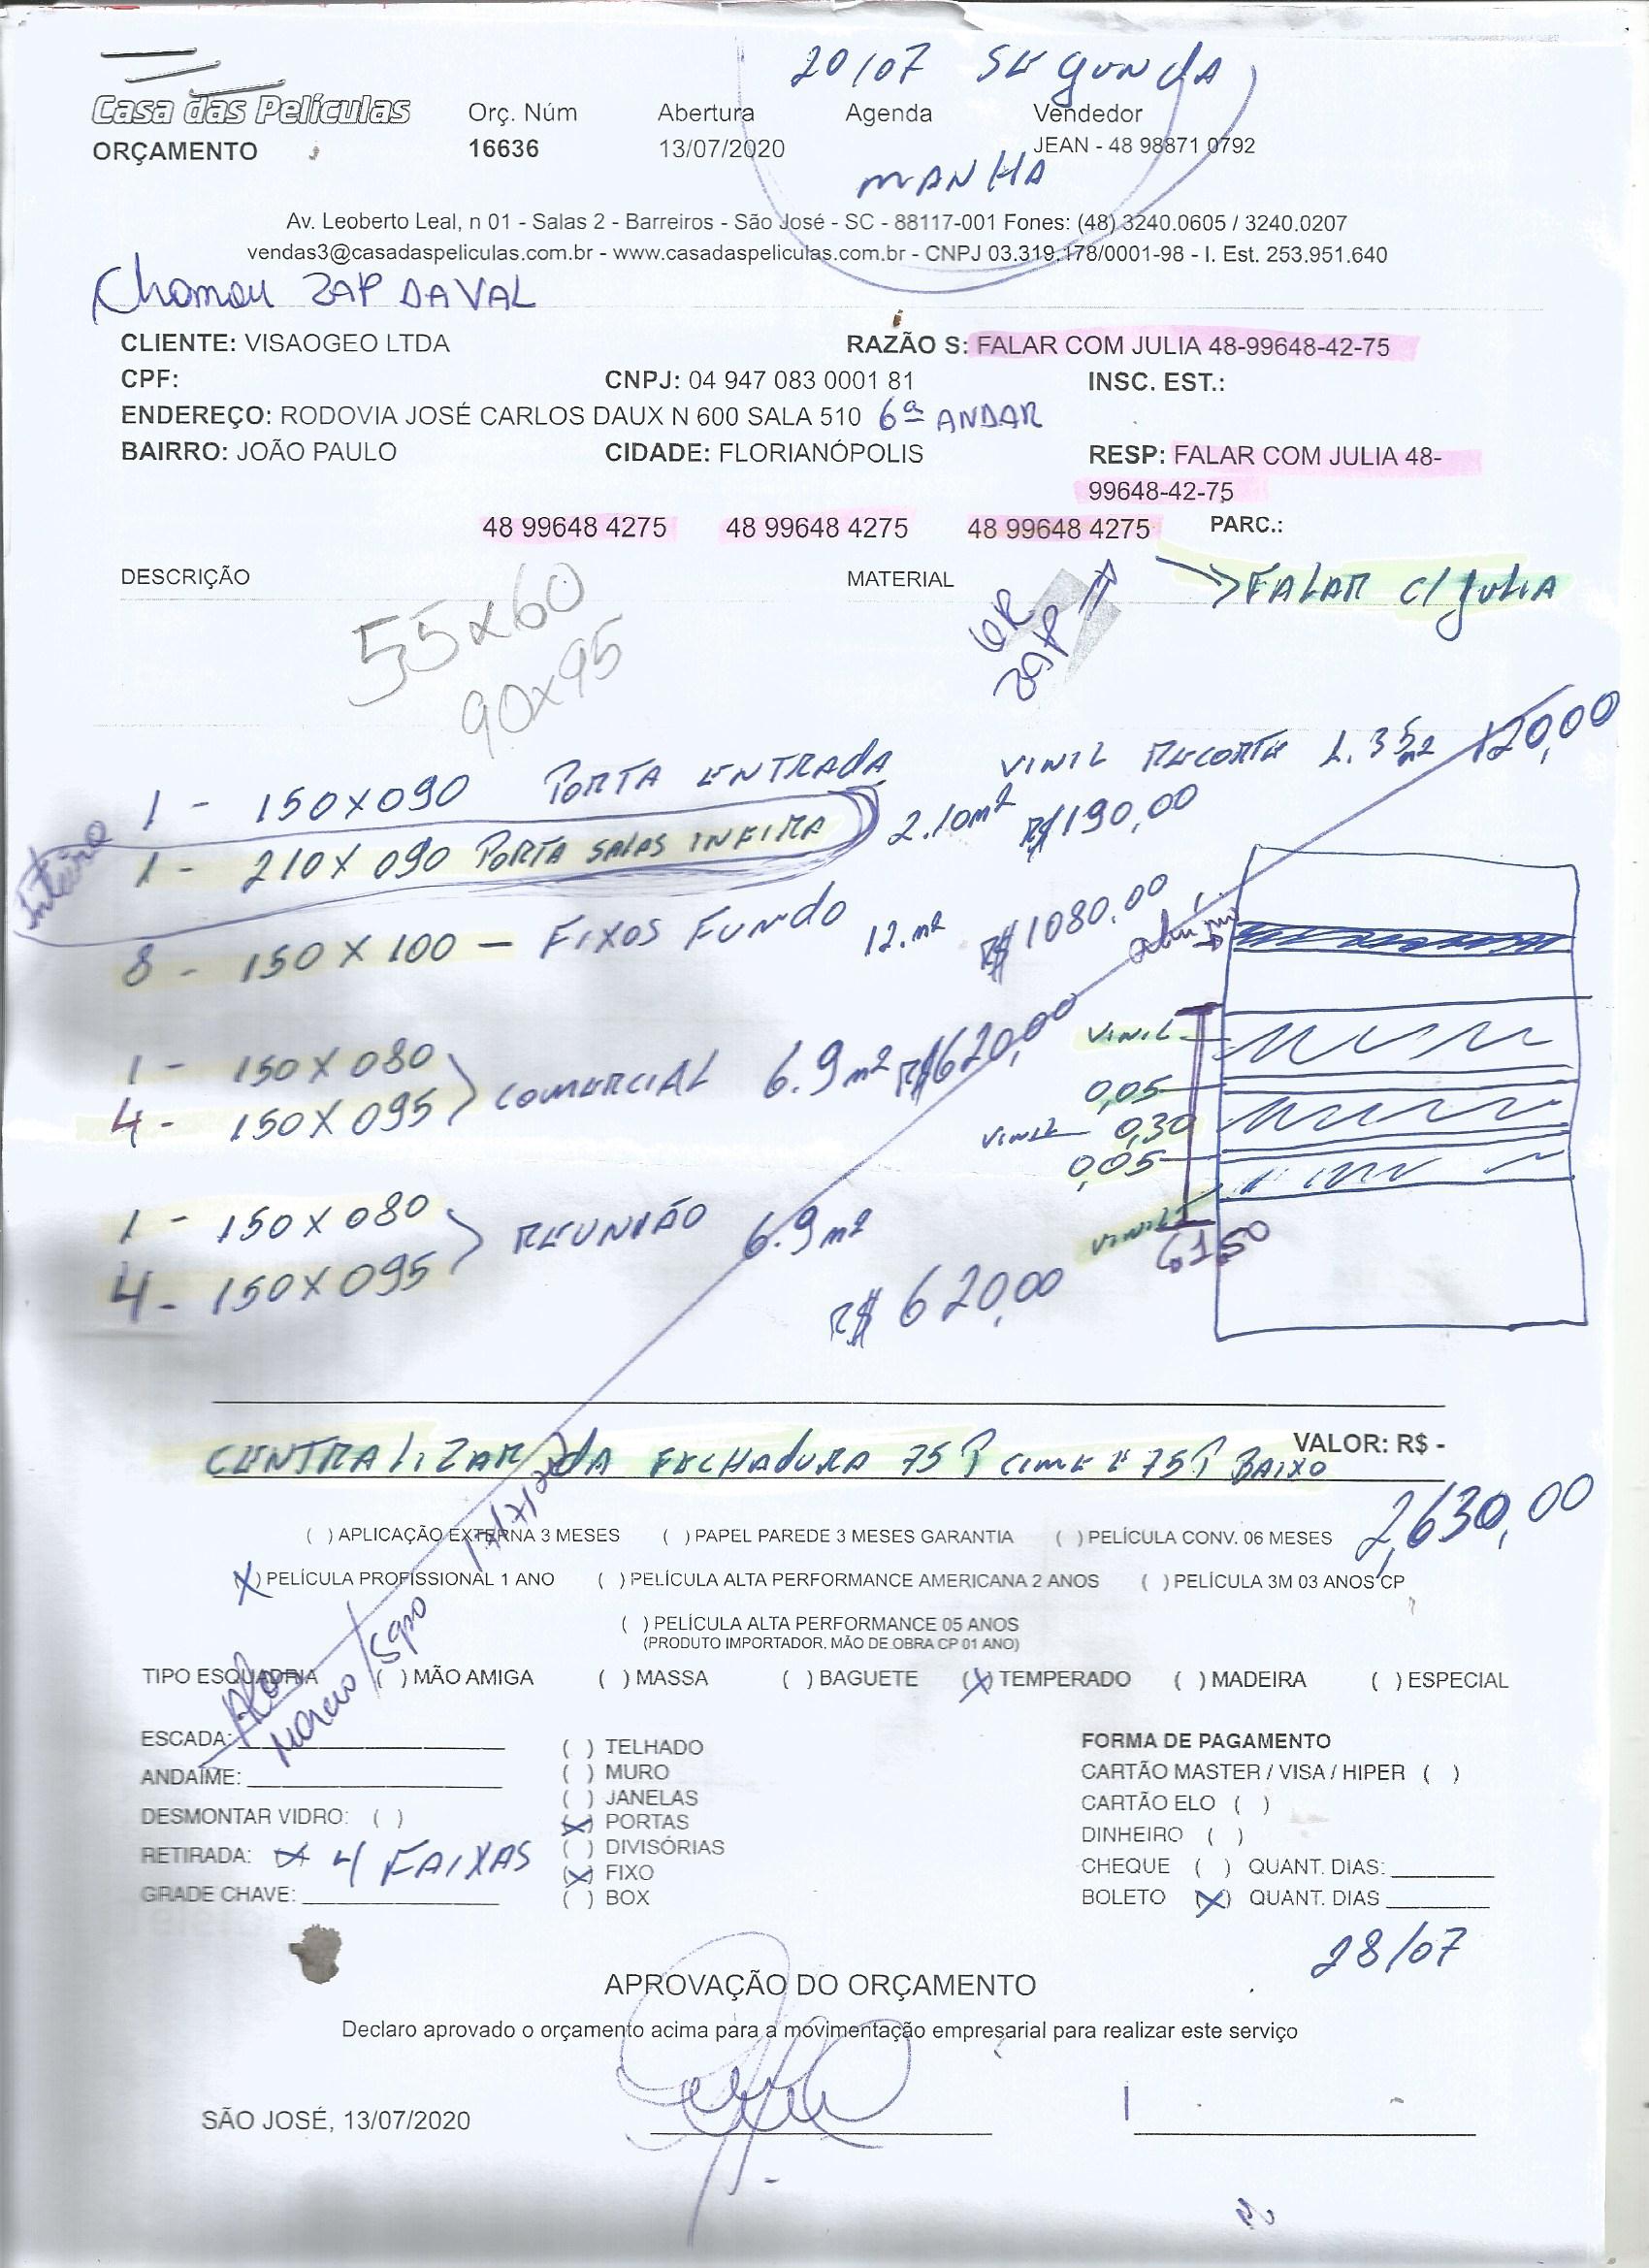 20/07 SEGUNDA
Casa das Películas
Orç. Núm Abertura Agenda Vendedor
ORÇAMENTO 16636 13/07/2020 JEAN - 48 98871 0792
MANHA
Av. Leoberto Leal, n 01 - Salas 2 - Barreiros - São José - SC - 88117-001 Fones: (48) 3240.0605 / 3240.0207
vendas3@casadaspeliculas.com.br - www.casadaspeliculas.com.br - CNPJ 03.319.178/0001-98 - I. Est. 253.951.640
Chamou ZAP DAVAL
CLIENTE: VISAOGEO LTDA RAZÃO S: FALAR COM JULIA 48-99648-42-75
CPF: CNPJ: 04 947 083 0001 81 INSC. EST.:
ENDEREÇO: RODOVIA JOSÉ CARLOS DAUX N 600 SALA 510 6ª ANDAR
BAIRRO: JOÃO PAULO CIDADE: FLORIANÓPOLIS RESP: FALAR COM JULIA 48-
99648-42-75
48 99648 4275 48 99648 4275 48 99648 4275 PARC.:
DESCRIÇÃO MATERIAL
FALAR C/ JULIA
55x60
ZAP
90x95
1 - 150X090 PORTA ENTRADA VINIL RECORTE 1.35m2 120,00
Inteiro
1 - 210X090 PORTA SALAS INFIMA 2.10m² R$190,00
8 - 150X100 - FIXOS FUNDO 12.m² R$1080.00
1 - 150X080
4 - 150X095 COMERCIAL 6.9m² R$620,00
VINIL
0,05
VINIL 0,30
0,05
VINIL
1,50
1 - 150X080
4 - 150X095 REUNIÃO 6.9m²
R$ 620,00
VALOR: R$ -
CENTRALIZAR DA FECHADURA 75 P CIMA E 75 P BAIXO
2,630,00
( ) APLICAÇÃO EXTERNA 3 MESES ( ) PAPEL PAREDE 3 MESES GARANTIA ( ) PELÍCULA CONV. 06 MESES
(X) PELÍCULA PROFISSIONAL 1 ANO ( ) PELÍCULA ALTA PERFORMANCE AMERICANA 2 ANOS ( ) PELÍCULA 3M 03 ANOS CP
( ) PELÍCULA ALTA PERFORMANCE 05 ANOS
(PRODUTO IMPORTADOR, MÃO DE OBRA CP 01 ANO)
TIPO ESQUADRIA ( ) MÃO AMIGA ( ) MASSA ( ) BAGUETE (X) TEMPERADO ( ) MADEIRA ( ) ESPECIAL
ESCADA:
ANDAIME:
DESMONTAR VIDRO: ( )
RETIRADA: X 4 FAIXAS
GRADE CHAVE:
( ) TELHADO
( ) MURO
( ) JANELAS
(X) PORTAS
( ) DIVISÓRIAS
(X) FIXO
( ) BOX
FORMA DE PAGAMENTO
CARTÃO MASTER / VISA / HIPER ( )
CARTÃO ELO ( )
DINHEIRO ( )
CHEQUE ( ) QUANT. DIAS:
BOLETO (X) QUANT. DIAS
28/07
APROVAÇÃO DO ORÇAMENTO
Declaro aprovado o orçamento acima para a movimentação empresarial para realizar este serviço
SÃO JOSÉ, 13/07/2020